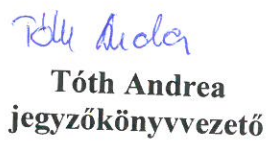 Tóth Andrea
Tóth Andrea
jegyzőkönyvvezető